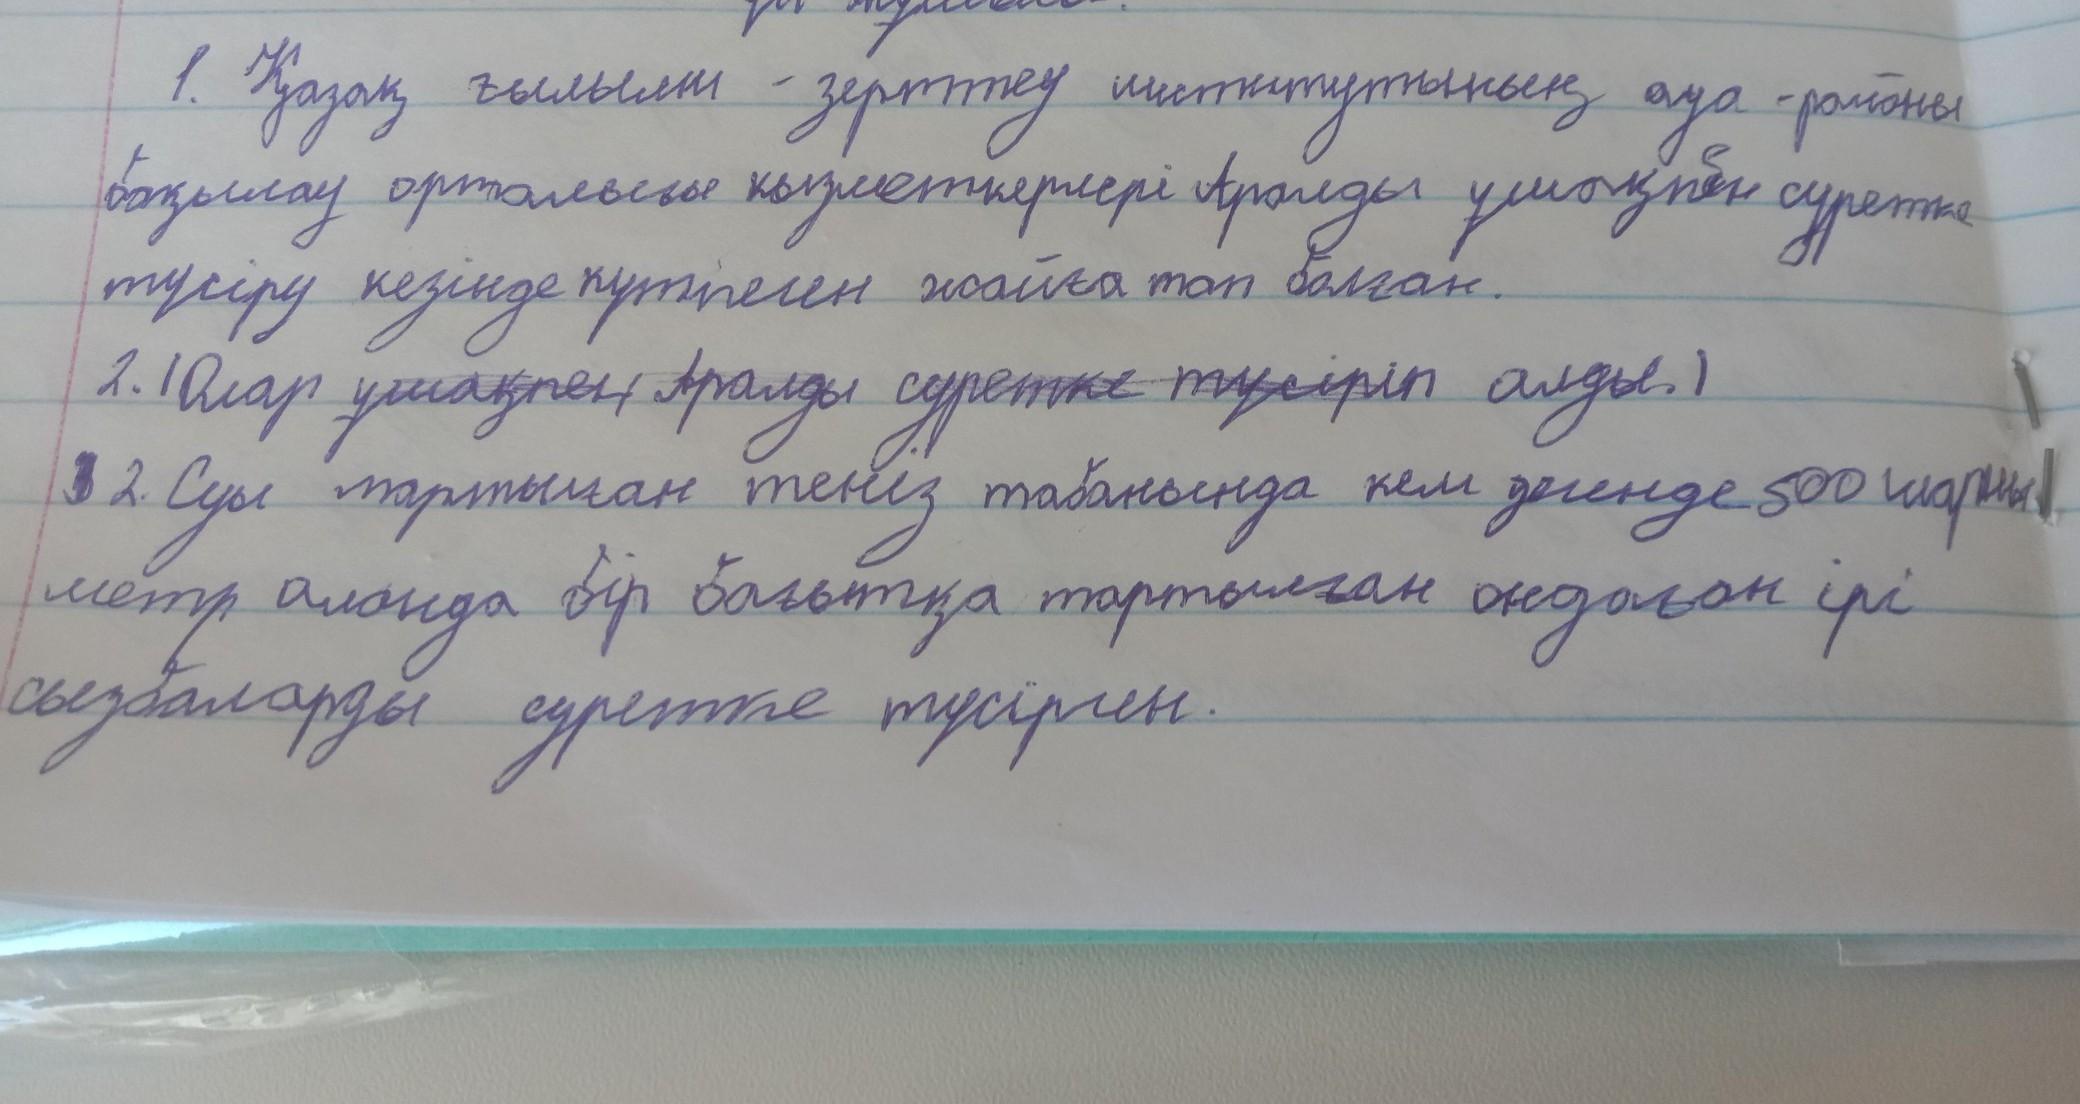 үй жұмысы.
1. Қазақ ғылыми - зерттеу институтының ауа - районы
бақылау орталығы қызметкерлері Аралды ұшақпен суретке
түсіру кезінде күтпеген жайға тап болған.
2. (Олар ұшақпен Аралды суретке түсіріп алды.)
2. Суы тартылған теңіз табанында кем дегенде 500 шаршы
метр аланда бір бағытқа тартылған ондаған ірі
сызбаларды суретке түсірген.